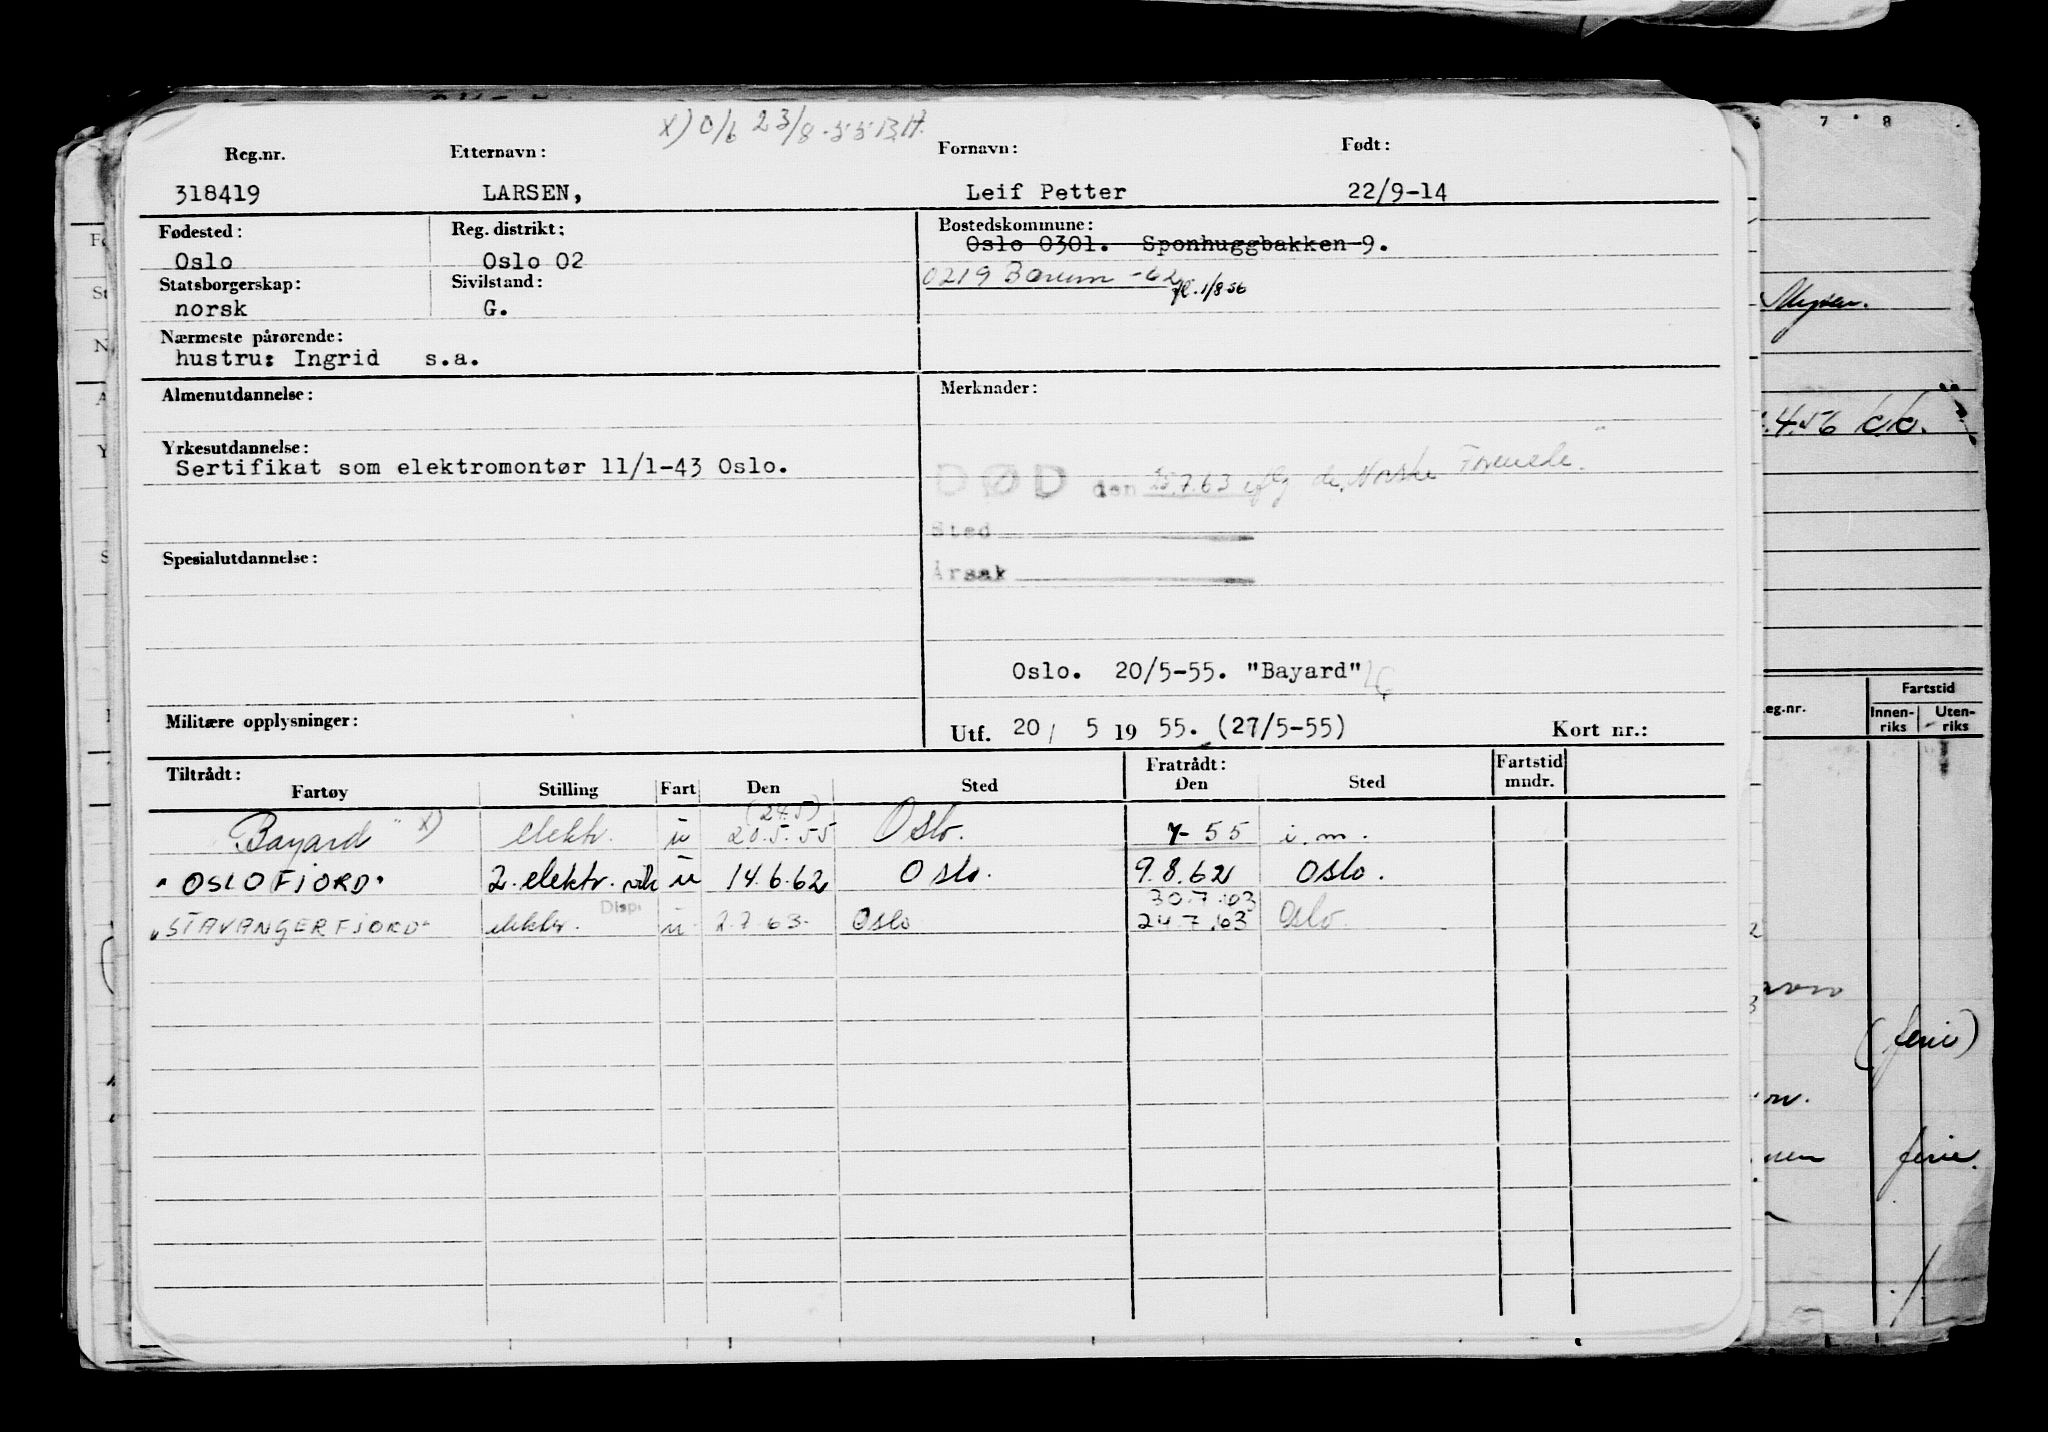 x) O/b 23/8-55 BH.
Reg.nr. Etternavn: Fornavn: Født:
318419 LARSEN, Leif Petter 22/9-14
Fødested: Reg. distrikt: Bostedskommune:
Oslo Oslo 02 Oslo 0301. Sponhuggbakken 9.
0219 Bærum -62 fl. 1/8 56
Statsborgerskap: Sivilstand:
norsk G.
Nærmeste pårørende:
hustru: Ingrid s.a.
Almenutdannelse: Merknader:
Yrkesutdannelse:
Sertifikat som elektromontør 11/1-43 Oslo.
DØD den 25.7.63 iflg de, Norske Forenede.
Sted
Årsak
Spesialutdannelse:
Oslo. 20/5-55. "Bayard"
Militære opplysninger: Utf. 20/ 5 19 55. (27/5-55) Kort nr.:
Tiltrådt: Fratrådt: Fartstid
Fartøy Stilling Fart Den Sted Den Sted mndr.
(24.5)
Bayard" x) elektr. u 20.5.55 Oslo. 7-55 i.m.
"OSLOFJORD" 2. elektr. vik u 14.6.62 Oslo. 9.8.62 Oslo.
Disp. 30.7.63
"STAVANGERFJORD" elektr. u. 2.7.63. Oslo 24.7.63 Oslo.
6 7 8
Mysen.
.4.56
eg.nr. Fartstid
Innen-riks Uten-riks
(ferie)
ferie.